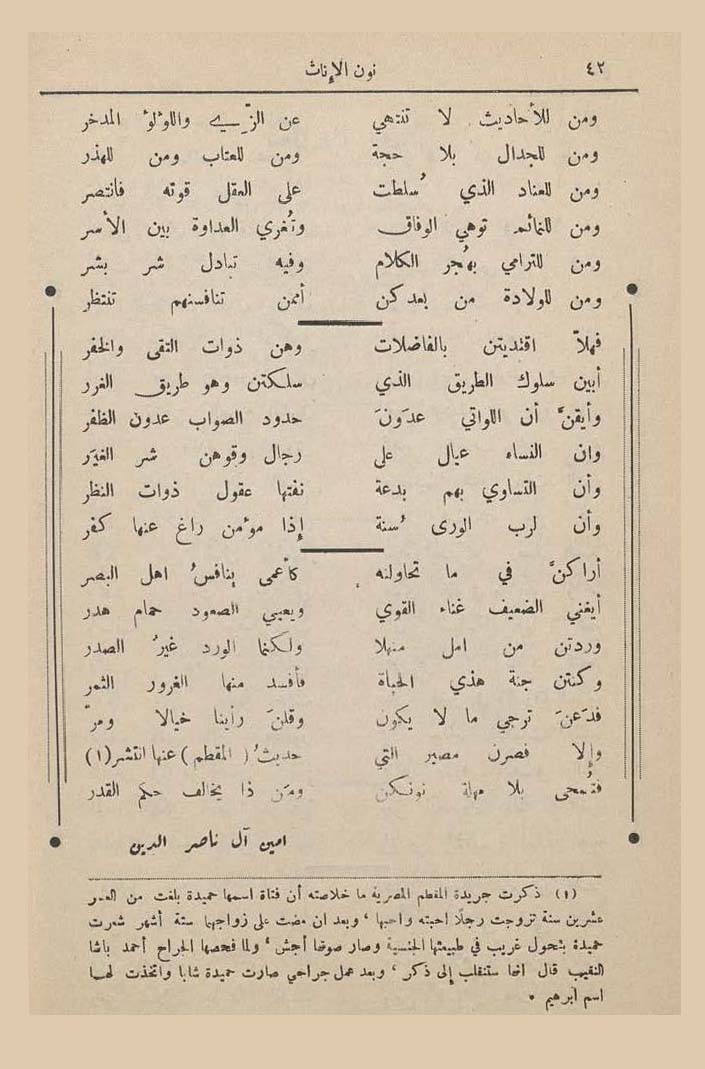 ٤٢ نون الإناث
ومن للأحاديث لا تنتهي عن الزّي واللوُلوُ المدخر
ومن للجدال بلا حجة ومن للعتاب ومن للهذر
ومن للعناد الذي سُلطت على العقل قوته فانتصر
ومن للنمائم توهي الوفاق وتُغري العداوة بين الأسر
ومن للترامي بهُجر الكلام وفيه تبادل شر بشر
ومن للولادة من بعدكن أممن تنافسنهم تنتظر
فهلاّ اقتديتن بالفاضلات وهن ذوات التقى والخفر
أبين سلوك الطريق الذي سلكتن وهو طريق الغرر
وأيقنَّ أن اللواتي عدَونَ حدود الصواب عدون الظفر
وان النساء عيال على رجال وقوهن شر الغِيَر
وأن التساوي بهم بدعة نفتها عقول ذوات النظر
وأن لرب الورى سُنة إذا موءمن راغ عنها كفر
أراكنَّ في ما تحاولنه كأعمى ينافسُ اهل البصر
أيغني الضعيف غناء القوي ويعيي الصعود حمام هدر
وردتن من امل منهلا ولكنما الورد غيرُ الصدر
وكنتن جنة هذي الحياة فأفسد منها الغرور الثمر
فدَعنَ ترجي ما لا يكون وقلنَ رأينا خيالا ومرّ
وإلا فصرن مصير التي حديثُ ( المقطم ) عنها انتشر (١)
فتُمحى بلا مهلة نونكن ومَن ذا يخالف حكم القدر
امين آل ناصر الدين
(١) ذكرت جريدة المقطم المصرية ما خلاصته أن فتاة اسمها حميدة بلغت من العمر
عشرين سنة تزوجت رجلًا احبته واحبها ، وبعد ان مضت على زواجهما ستة أشهر شعرت
حميدة بتحول غريب في طبيعتها الجنسية وصار صوتها أجش ، ولما فحصها الجراح أحمد باشا
النقيب قال انها ستنقلب إلى ذكر ، وبعد عمل جراحي صارت حميدة شابا واتخذت لها
اسم ابرهيم .